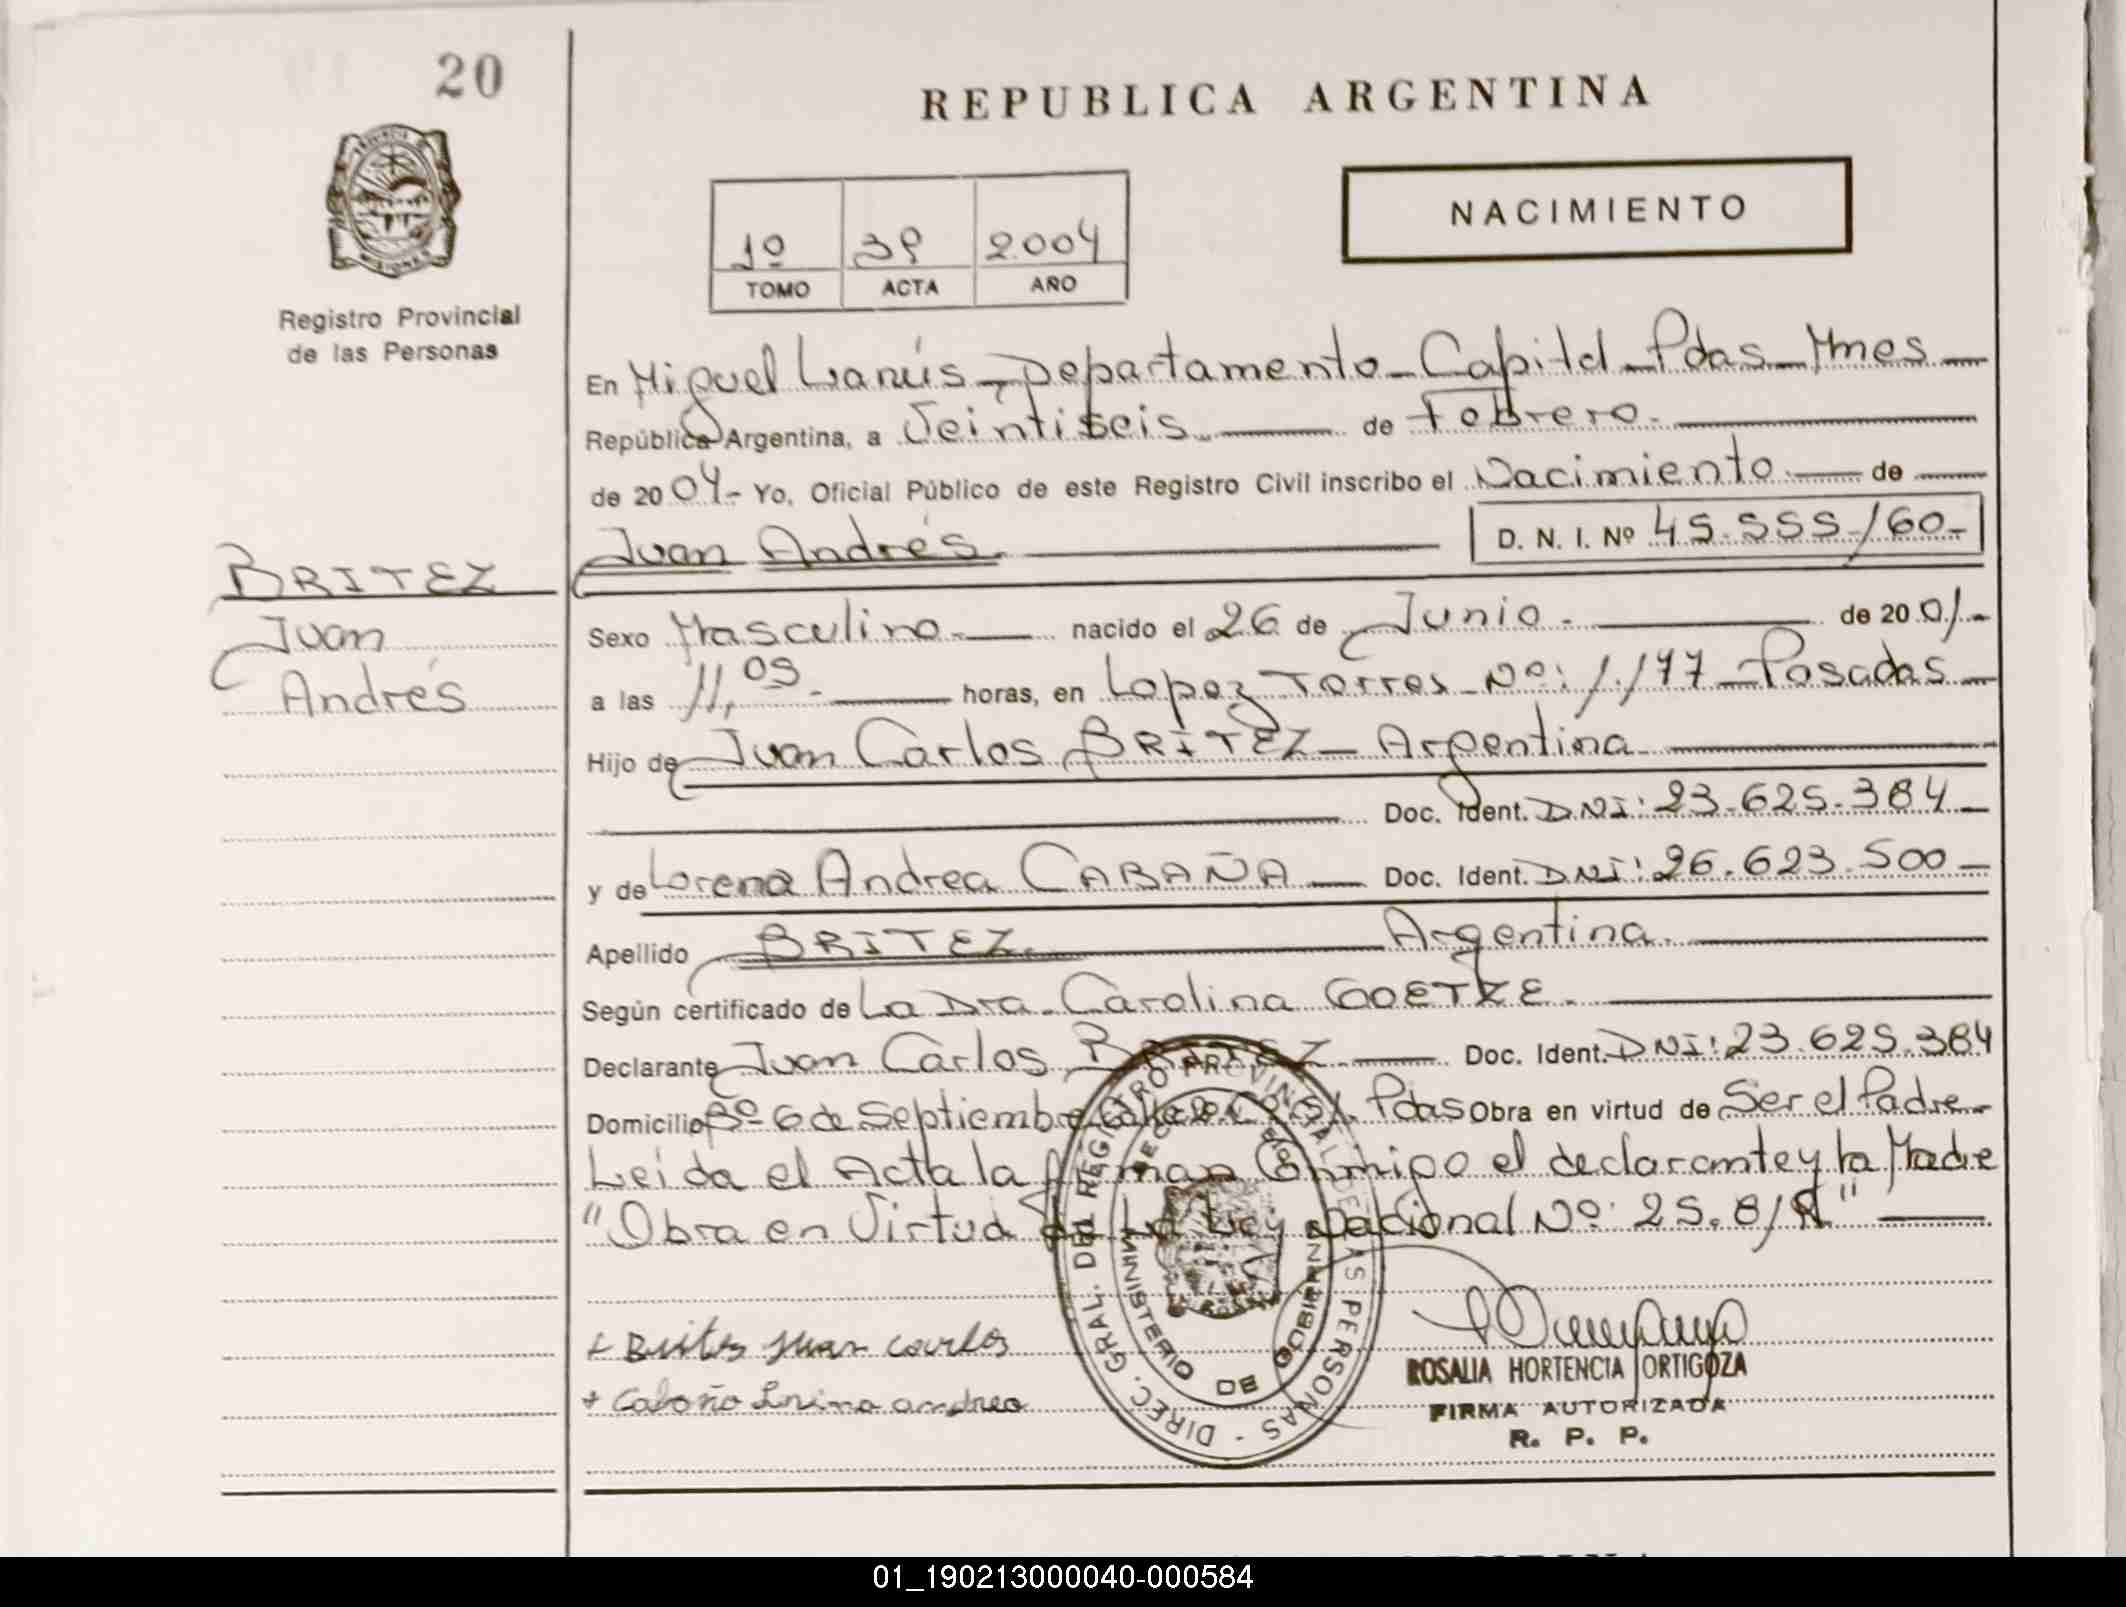 20
REPUBLICA ARGENTINA
PROVINCIA
MISIONES
Registro Provincial
de las Personas
NACIMIENTO
1º 39 2004
TOMO ACTA AÑO
En Miguel Lanús - Departamento - Capital - Pdas - Mnes
República Argentina, a Veintiseis de Febrero.
de 2004 - Yo, Oficial Público de este Registro Civil inscribo el Nacimiento de
Juan Andrés. D. N. I. Nº 45.555.160-
BRITEZ
Juan
Andrés
Sexo Masculino. nacido el 26 de Junio. de 2001.-
a las 11,05. horas, en Lopez Torres Nº: 1.177 - Posadas
Hijo de Juan Carlos BRITEZ - Argentina
Doc. Ident. DNI: 23.625.384
y de Lorena Andrea CABAÑA Doc. Ident. DNI: 26.623.500
Apellido BRITEZ. Argentina.
Según certificado de La Dra. Carolina GOETZE.
Declarante Juan Carlos BRITEZ Doc. Ident. DNI: 23.625.384
Domicilio Bº 6 de Septiembre Pdas Obra en virtud de Ser el Padre.
Leida el Acta la firman Conmigo el declarante y la Madre
"Obra en Virtud de La Ley Nacional Nº: 25.819"
+ Britez Juan Carlos
+ Cabaña Lorena andrea
DIREC. GRAL. DEL REGISTRO PROVINCIAL DE LAS PERSONAS
MINISTERIO DE GOBIERNO
ROSALIA HORTENCIA ORTIGOZA
FIRMA AUTORIZADA
R. P. P.
01_190213000040-000584